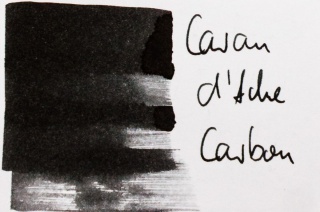 Caran
d'Ache
Carbon